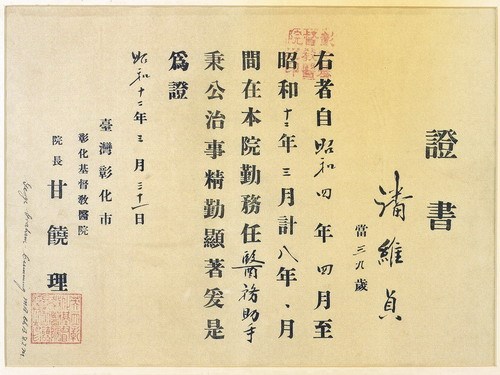 證書
潘維貞
當三九歲
右者自昭和四年四月至
昭和十二年三月計八年、月
間在本院勤務任醫務助手
秉公治事精勤顯著爰是
爲證
昭和十二年三月三十一日
臺灣彰化市
彰化基督敎醫院
院長 甘饒理
George Graham-Cumming